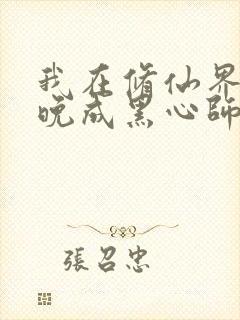 我在修仙界
晚成黑心師
張召忠